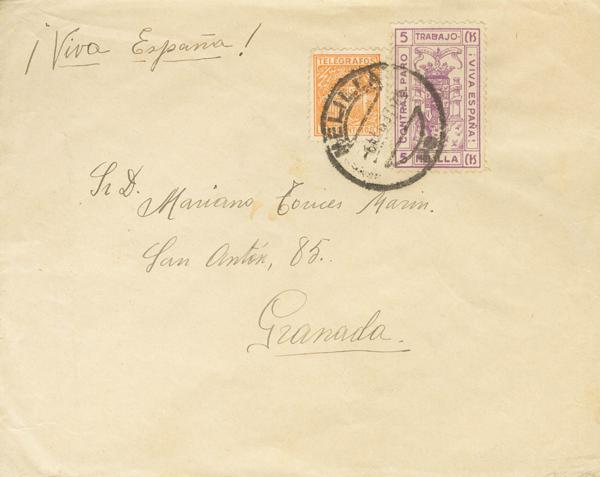 ¡Viva España!
TELÉGRAFOS
5 TRABAJO
CONTRA EL PARO
¡VIVA ESPAÑA!
5 MELILLA
MELILLA
Sr D.
Mariano Torices Marin.
San Antón, 85.
Granada.